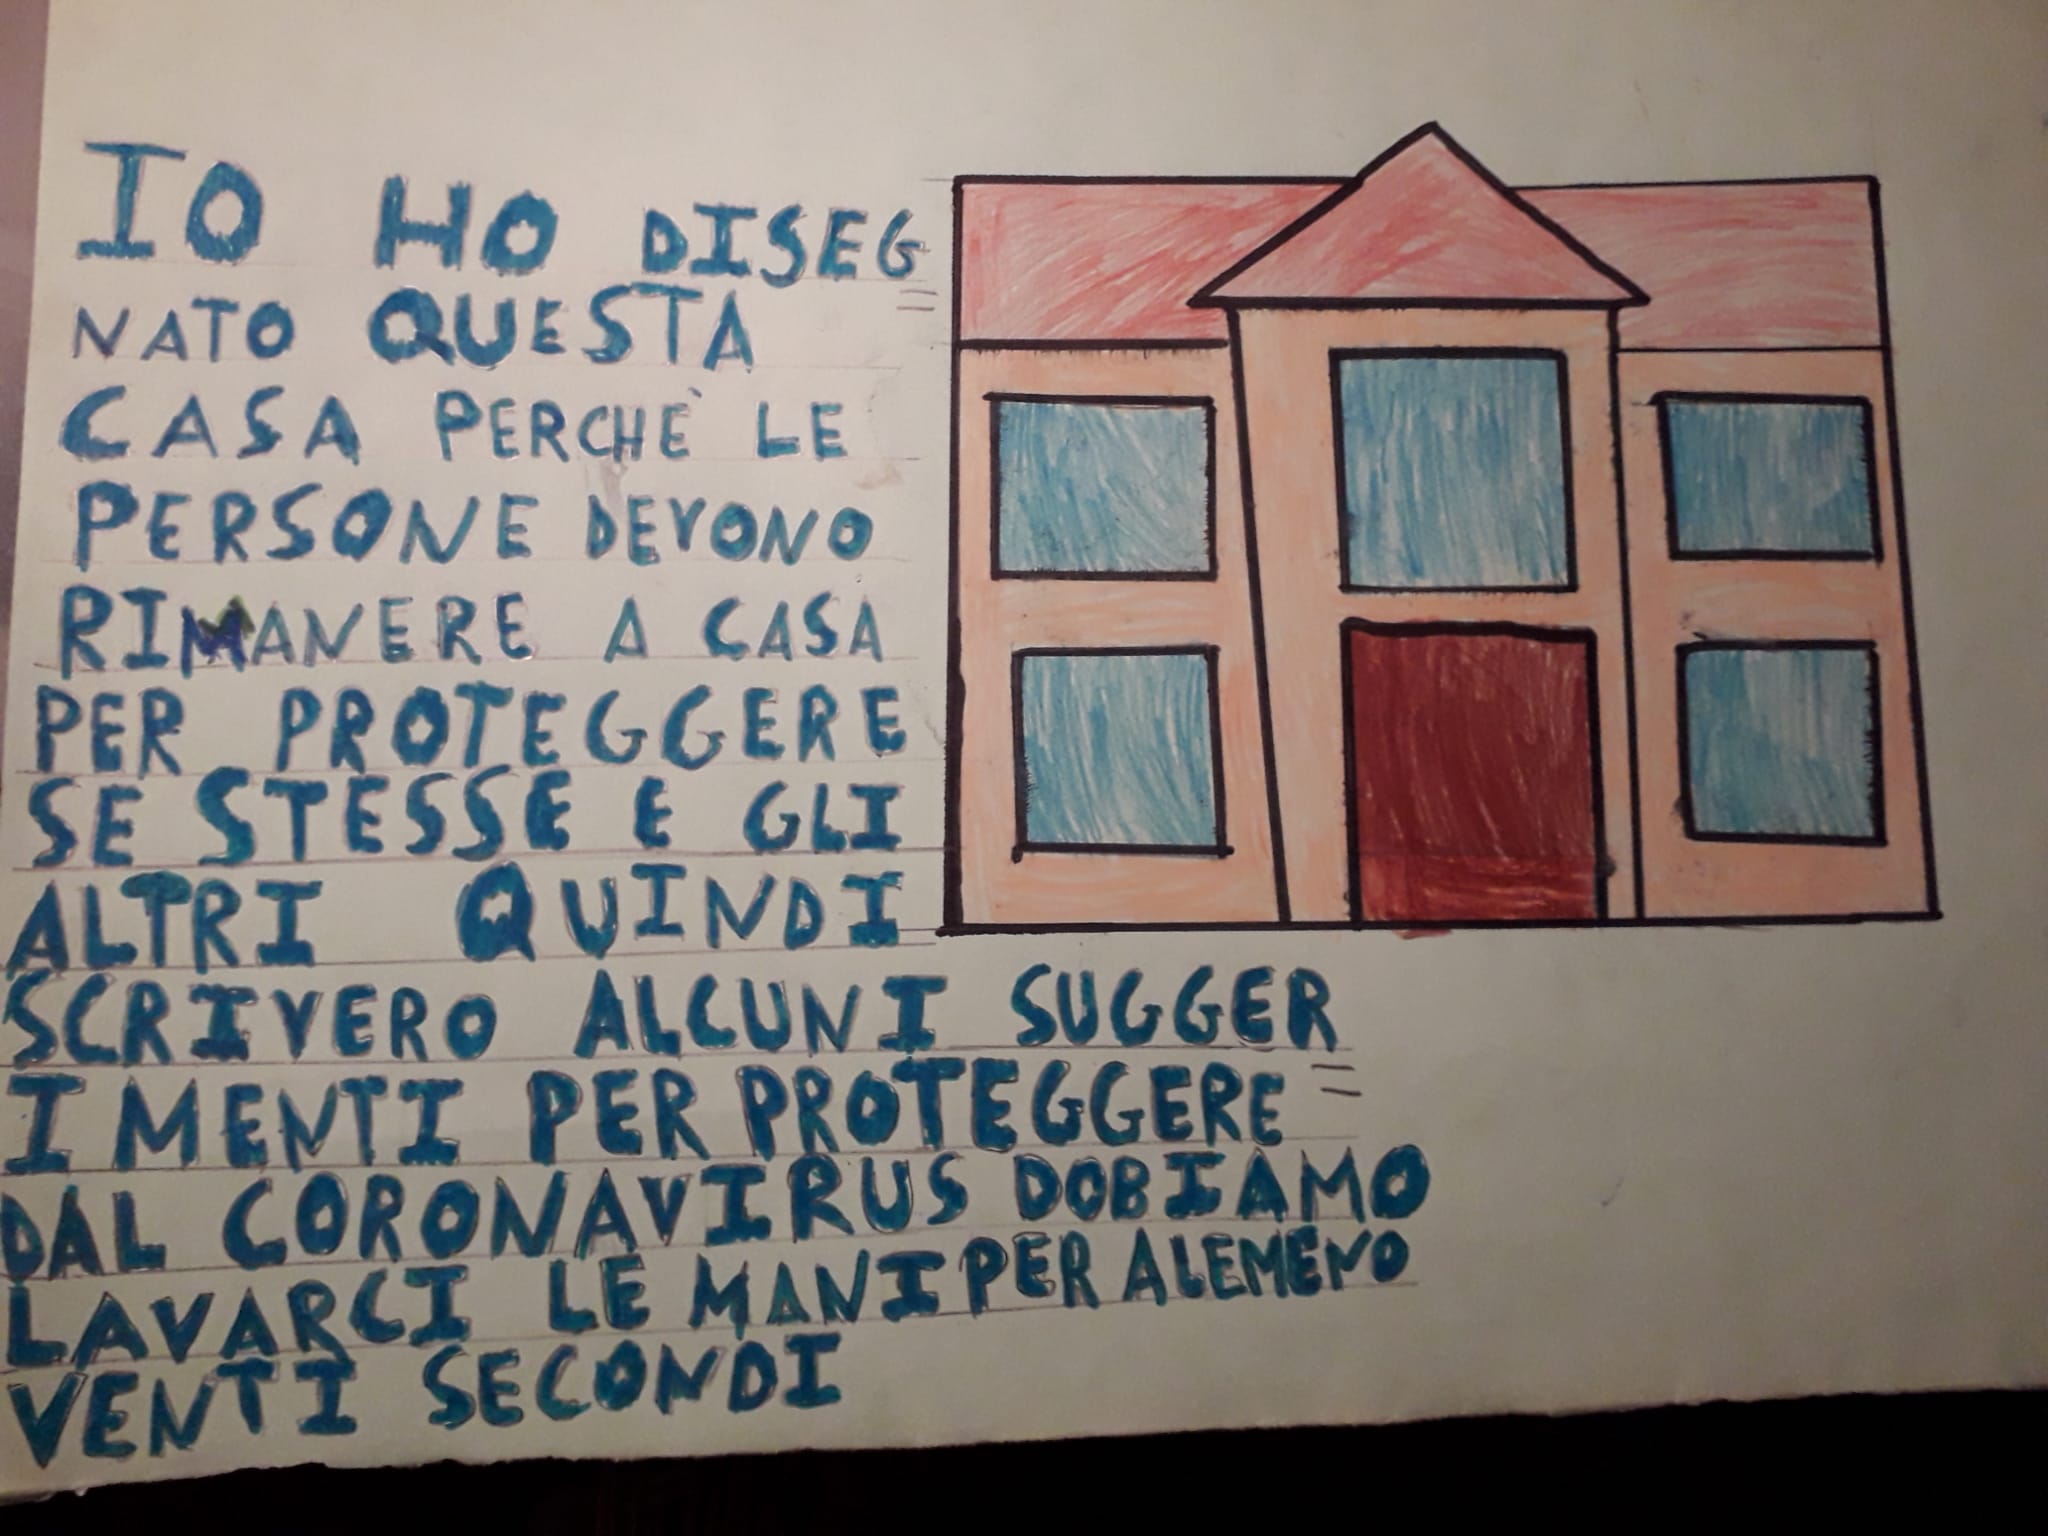 IO HO DISEG=
NATO QUESTA
CASA PERCHÈ LE
PERSONE DEVONO
RIMANERE A CASA
PER PROTEGGERE
SE STESSE E GLI
ALTRI QUINDI
SCRIVERO ALCUNI SUGGER=
IMENTI PER PROTEGGERE
DAL CORONAVIRUS DOBIAMO
LAVARCI LE MANI PER ALEMENO
VENTI SECONDI